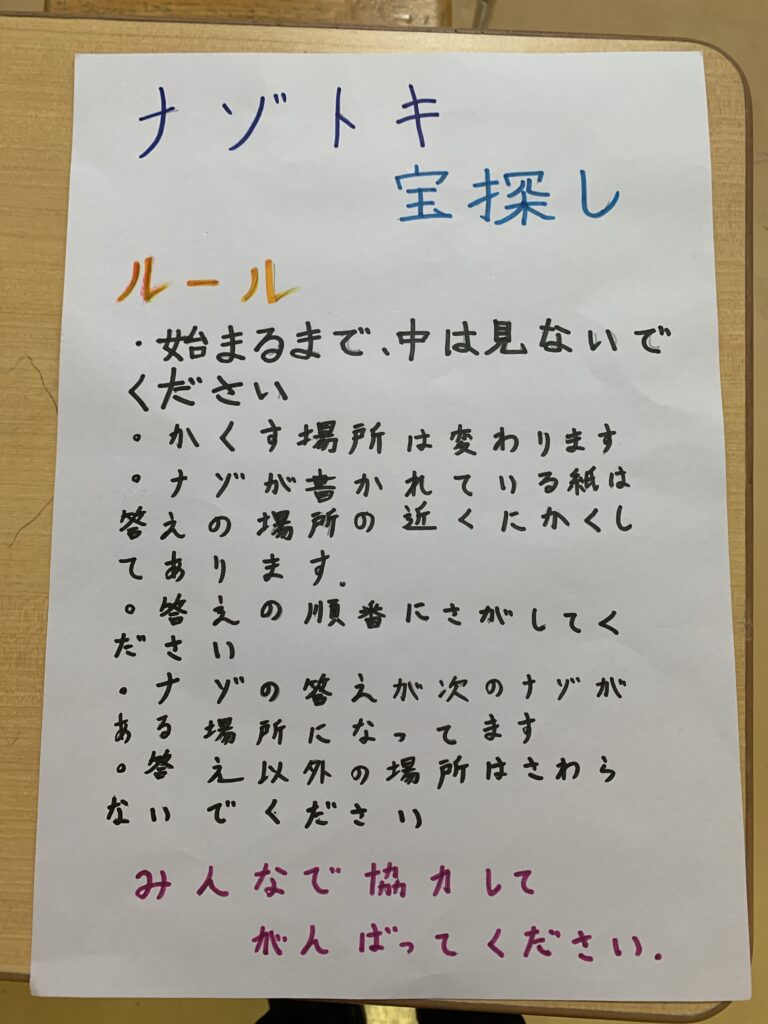 ナゾトキ
宝探し
ルール
・始まるまで、中は見ないで
ください
。かくす場所は変わります
。ナゾが書かれている紙は
答えの場所の近くにかくし
てあります.
。答えの順番にさがしてく
ださい
・ナゾの答えが次のナゾが
ある場所になってます
。答え以外の場所はさわら
ないでください
みんなで協力して
がんばってください.